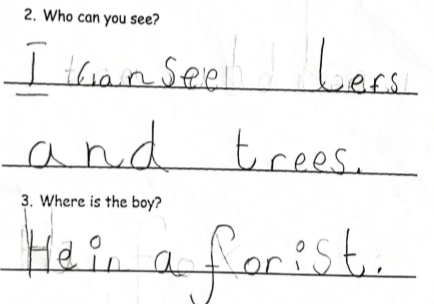 2. Who can you see?
I can see bers
and trees.
3. Where is the boy?
He in a forist.